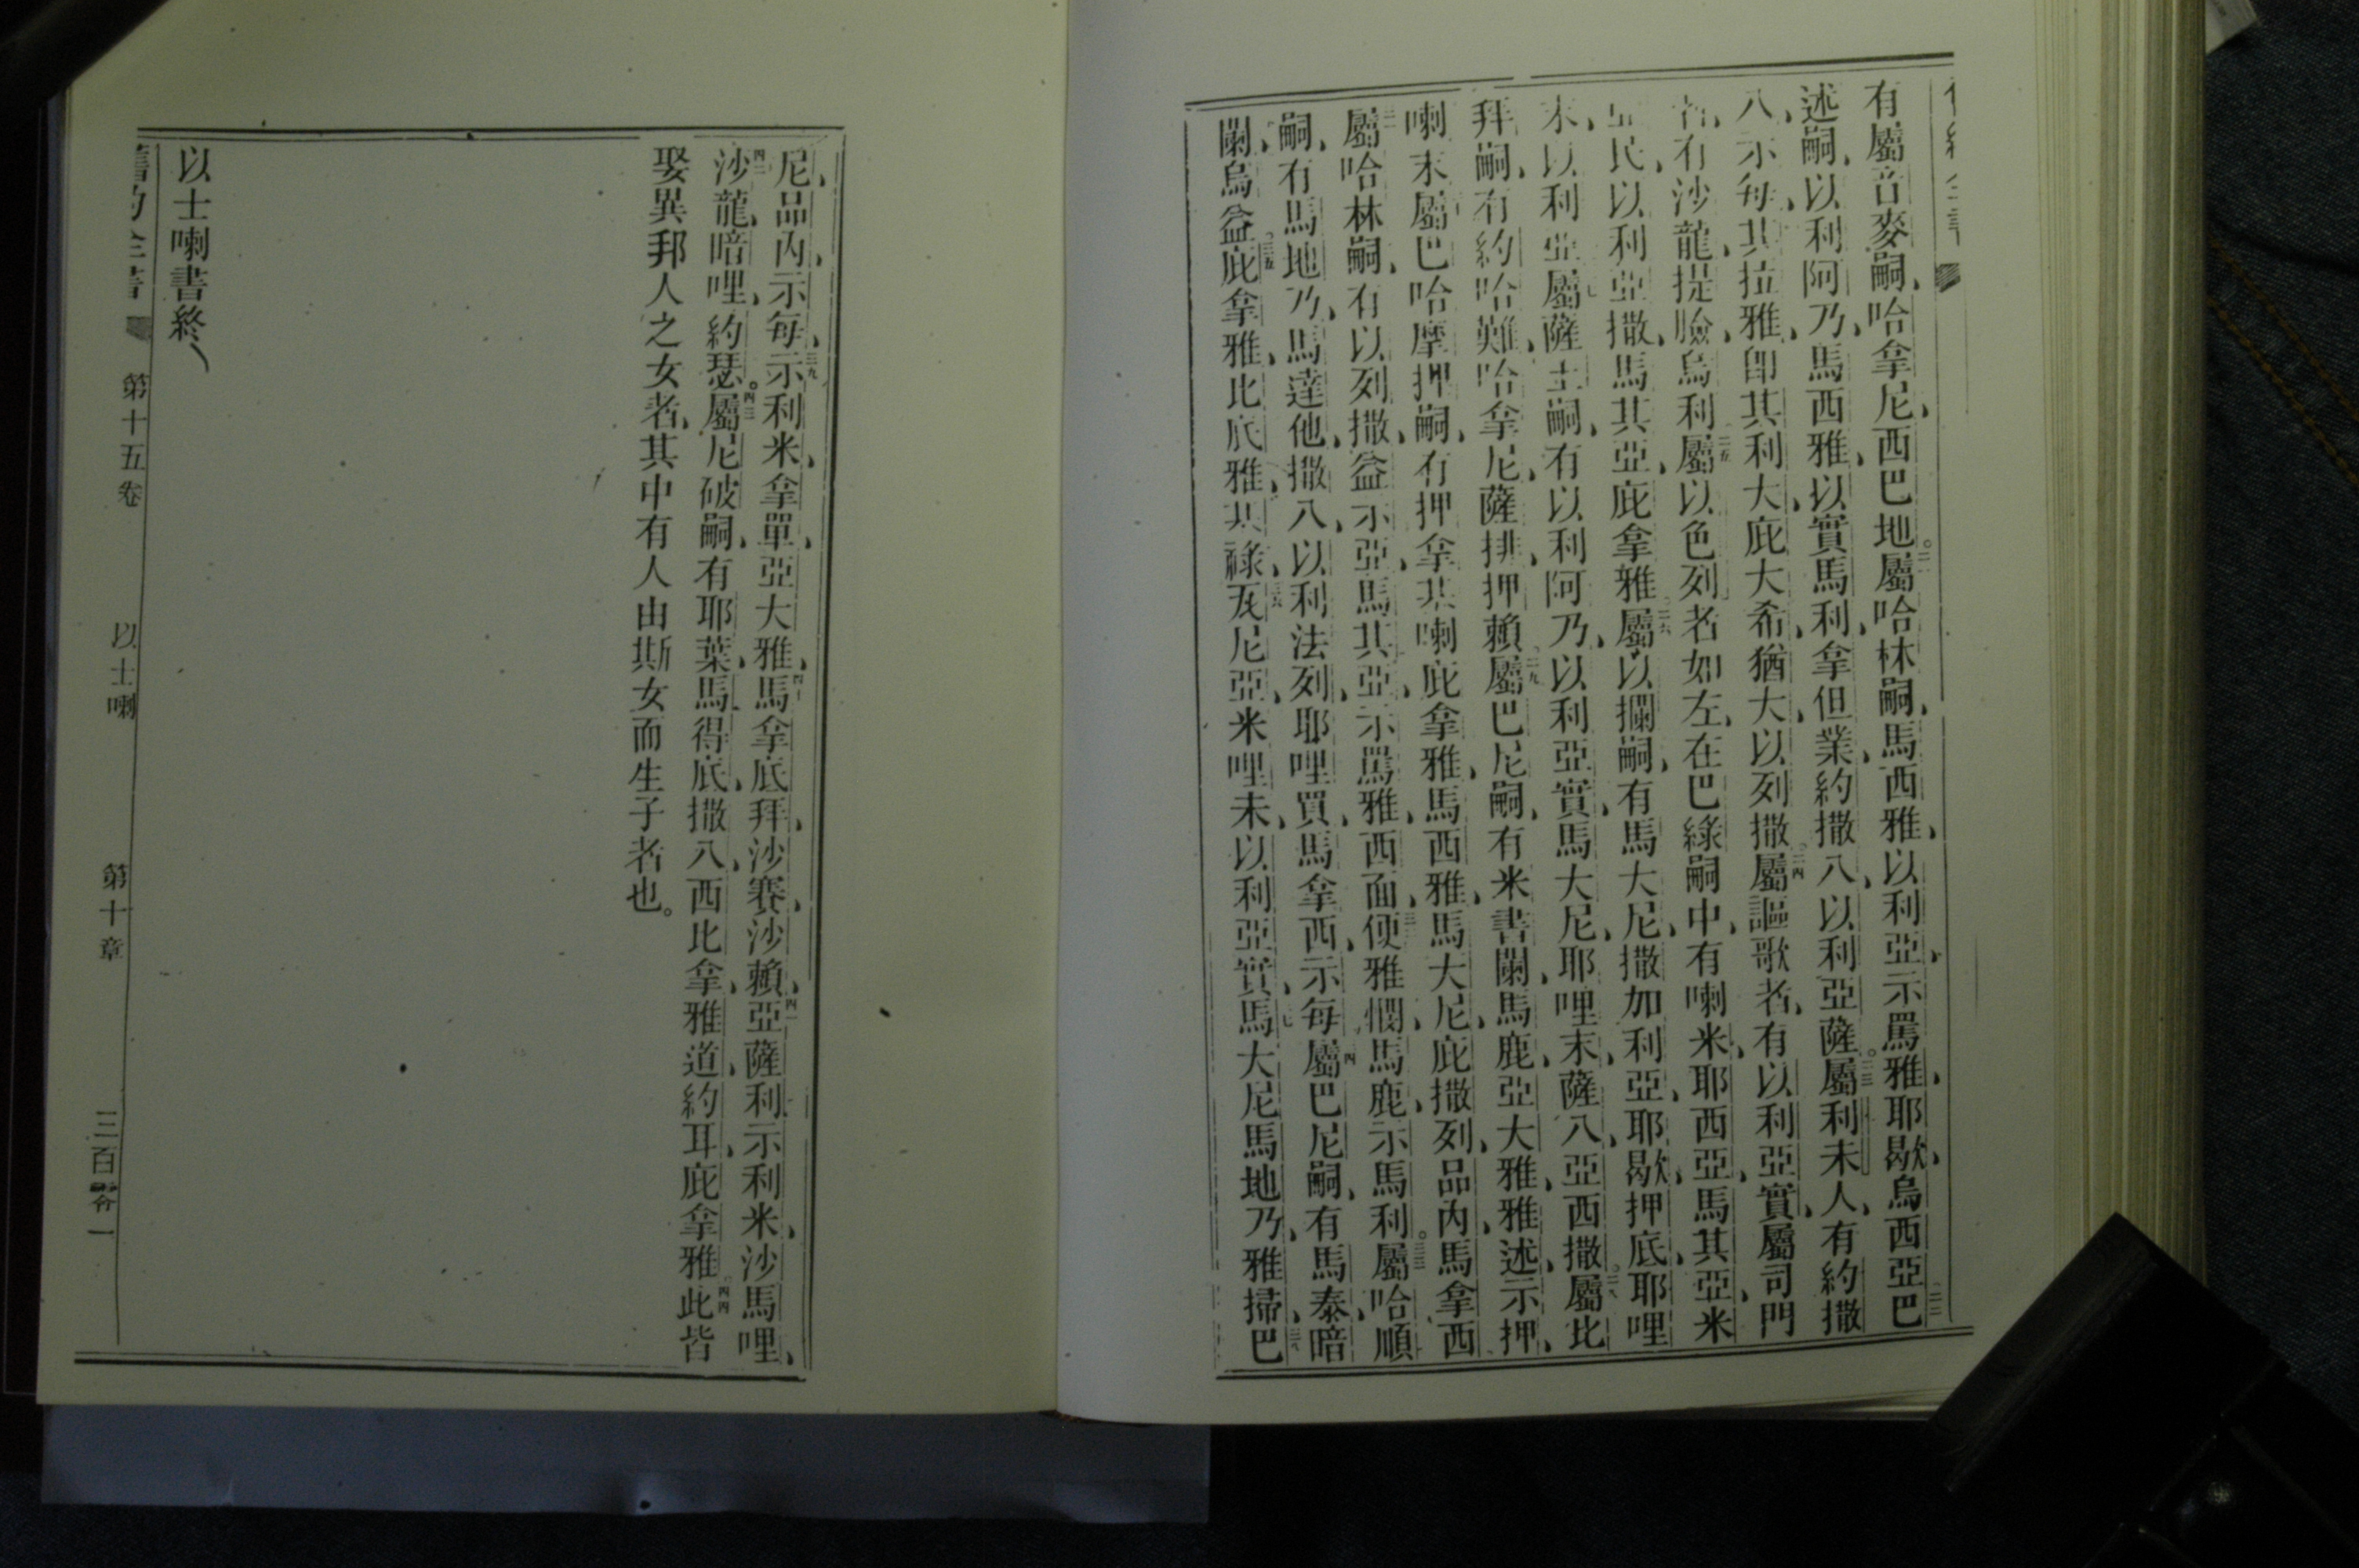 有屬音麥嗣、哈拿尼、西巴地。二一屬哈林嗣、馬西雅、以利亞、示罵雅、耶歇、烏西亞、二二巴
述嗣、以利阿乃、馬西雅、以實馬利、拿但業、約撒八、以利亞薩。二三屬利未人、有約撒
八、示每、其拉雅、卽其利大、庇大希、猶大、以列撒。二四屬謳歌者、有以利亞實、屬司門
者、有沙龍、提臉、烏利、二五屬以色列者如左、在巴綠嗣中、有喇米、耶西亞、馬其亞、米
民、以利亞撒、馬其亞、庇拿雅、二六屬以攔嗣、有馬大尼、撒加利亞、耶歇、押底、耶哩
末、以利亞、屬薩土嗣、有以利阿乃、以利亞實、馬大尼、耶哩末、薩八、亞西撒。二八屬比
拜嗣、有約哈難、哈拿尼、薩排、押賴、二九屬巴尼嗣、有米書蘭、馬鹿、亞大雅、雅述、示押、
喇末、屬巴哈摩押嗣、有押拿、其喇、庇拿雅、馬西雅、馬大尼、庇撒列、品內、馬拿西
屬哈林嗣、有以列撒、益示亞、馬其亞、示罵雅、西面、便雅憫、馬鹿、示馬利。三三屬哈順
嗣、有馬地乃、馬達他、撒八、以利法列、耶哩買、馬拿西、示每、屬巴尼嗣、有馬泰、暗
蘭、烏益。三五庇拿雅、比底雅、其祿、三六瓦尼亞、米哩末、以利亞實、馬大尼、馬地乃、雅掃、巴
尼、品內、示每、三九示利米、拿單、亞大雅、馬拿底拜、沙賽、沙賴、四一亞薩利、示利米、沙馬哩、
四二沙龍、暗哩、約瑟。四三屬尼破嗣、有耶葉、馬得底、撒八、西比拿、雅道、約耳、庇拿雅。四四此皆
娶異邦人之女者、其中有人由斯女而生子者也。
以士喇書終
舊約全書 第十五卷 以士喇 第十章 三百零一